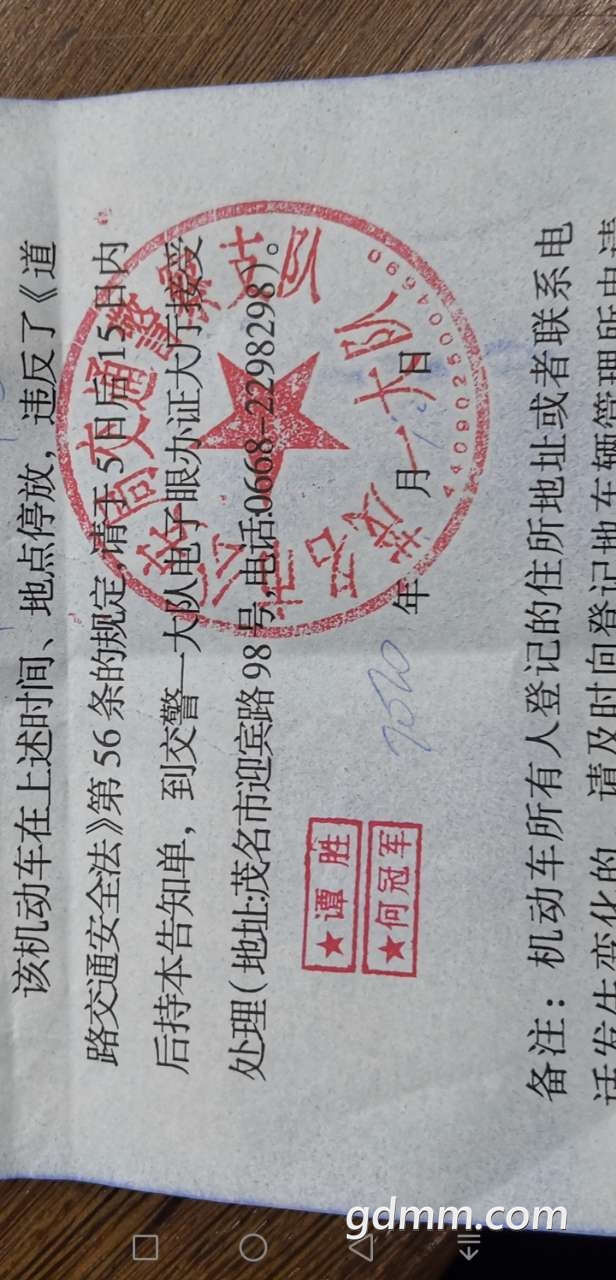 该机动车在上述时间、地点停放，违反了《道
路交通安全法》第 56 条的规定,请于 5 日后 15 日内
后持本告知单，到交警一大队电子眼办证大厅接受
处理(地址:茂名市迎宾路 98 号,电话:0668-2298298)。
茂名市公安局交通警察支队
一大队
4409025004690
★谭 胜
★何冠军
2020 年 月 日
备注：机动车所有人登记的住所地址或者联系电
话发生变化的，请及时向登记地车辆管理所申请
gdmm.com